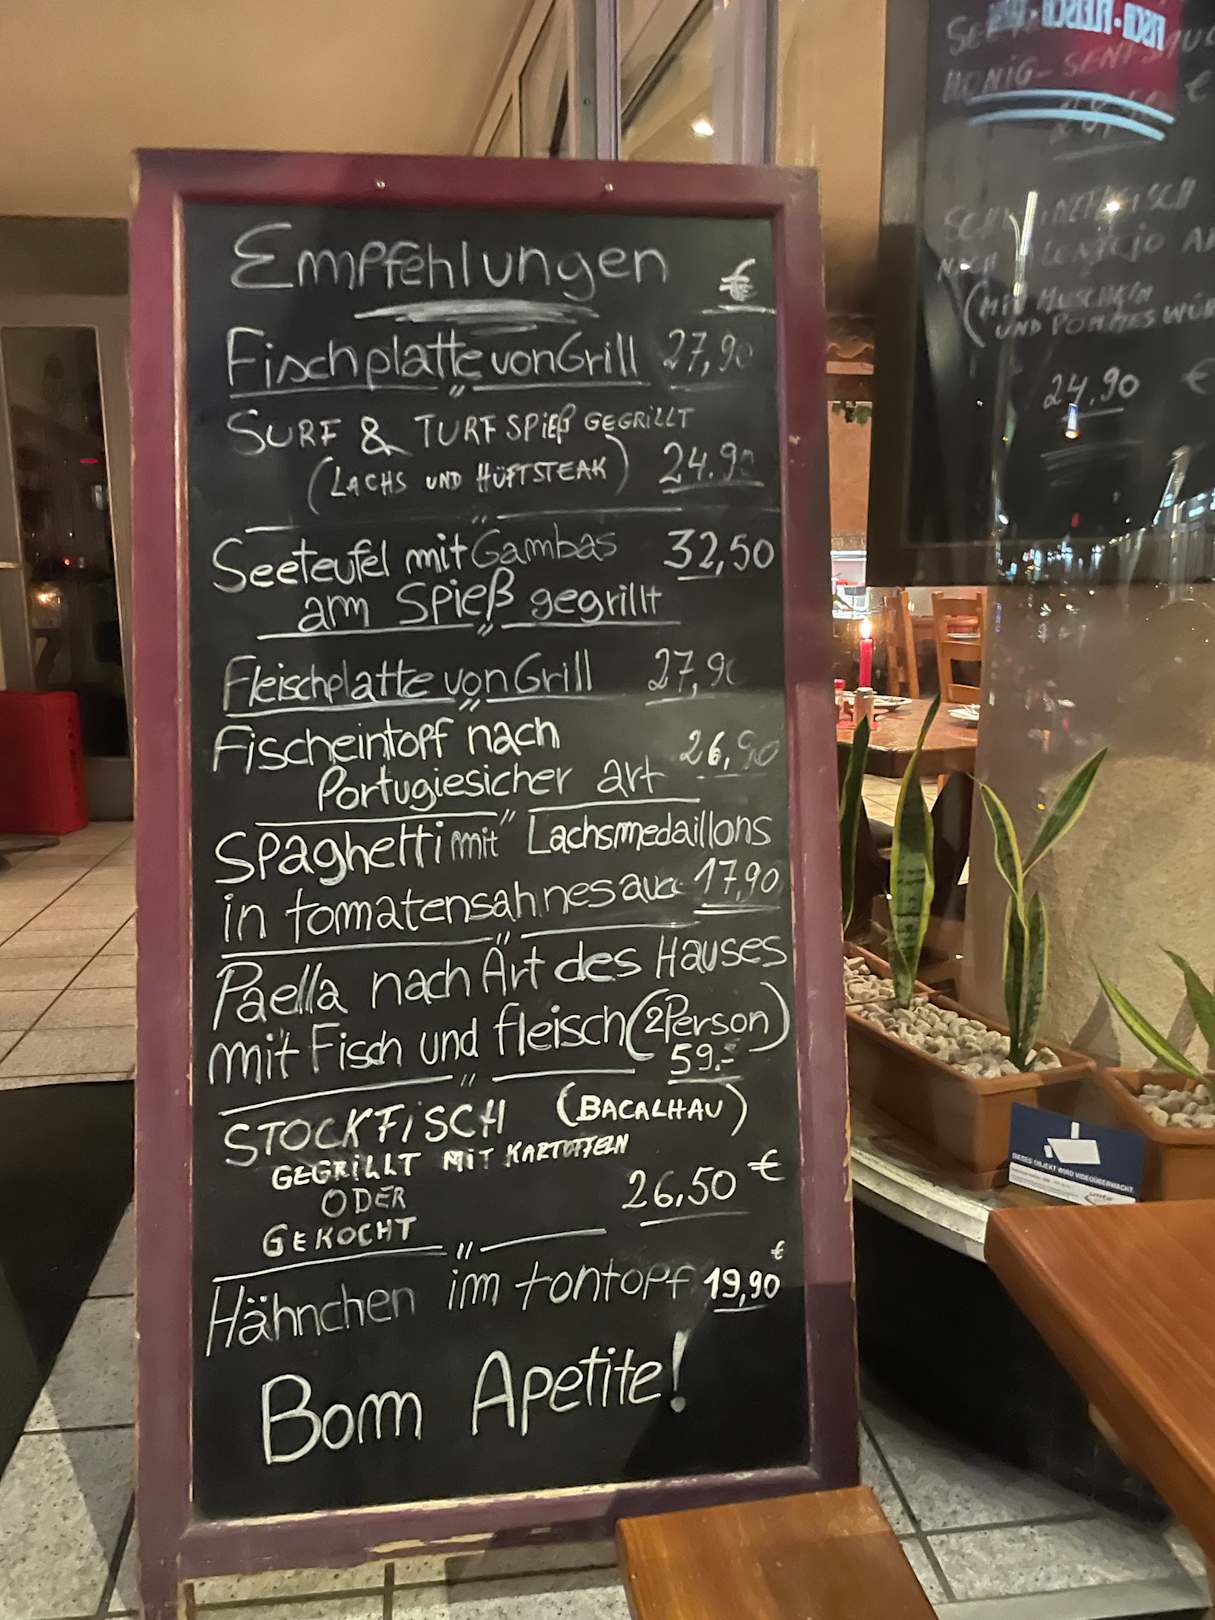 Empfehlungen €
Fischplatte von Grill 27,90
SURF & TURF SPIEß GEGRILLT
(LACHS UND HÜFTSTEAK) 24.90
Seeteufel mit Gambas 32,50
am Spieß gegrillt
Fleischplatte von Grill 27,90
Fischeintopf nach
Portugiesicher art 26,90
Spaghetti mit Lachsmedaillons
in tomatensahnesauce 17,90
Paella nach Art des Hauses
mit Fisch und fleisch (2 Person)
59.-
STOCKFISCH (BACALHAU)
GEGRILLT MIT KARTOFFELN
ODER 26,50 €
GEKOCHT
Hähnchen im tontopf 19,90 €
Bom Apetite!
HONIG-
(MIT MUSCHELN
UND POMMES
24.90 €
DIESES OBJEKT WIRD VIDEOÜBERWACHT